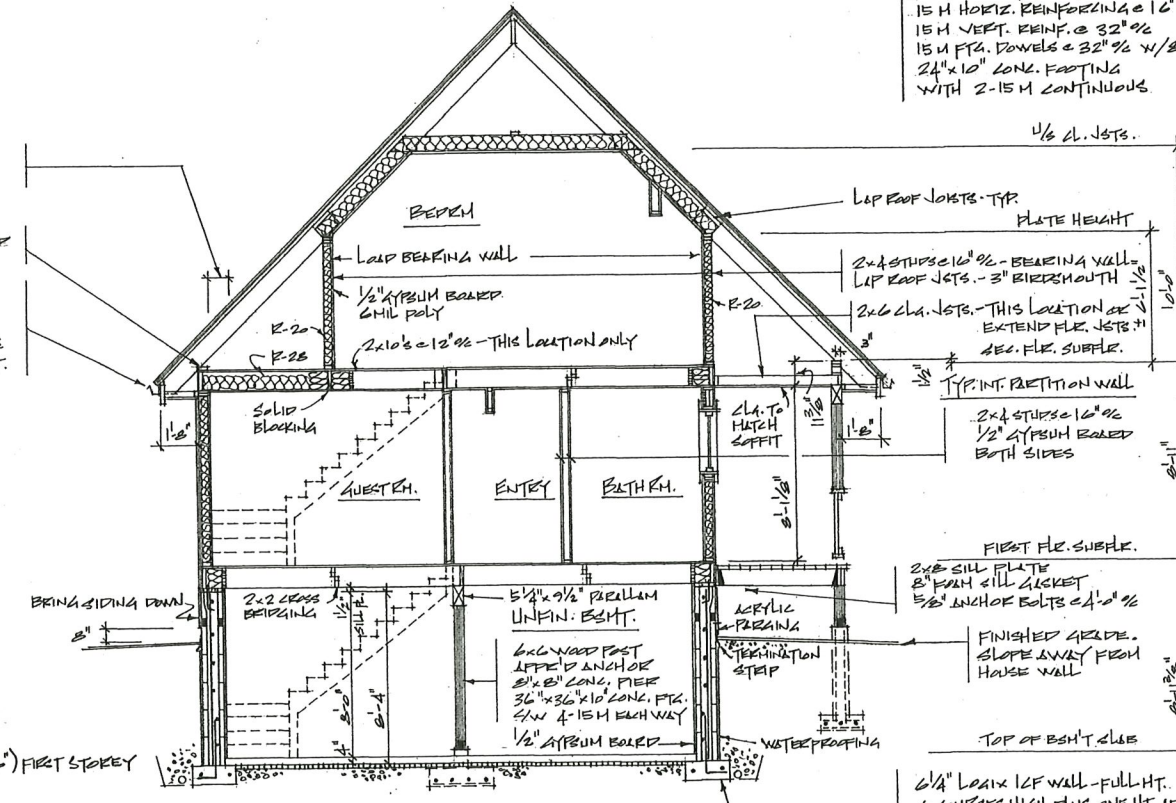 15 M HORIZ. REINFORCING @ 16"
15 M VERT. REINF. @ 32" O/C
15 M FTG. DOWELS @ 32" O/C W/
24" x 10" CONC. FOOTING
WITH 2-15 M CONTINUOUS
U/S CL. JSTS.
LAP ROOF JOISTS - TYP.
PLATE HEIGHT
BEDRM
LOAD BEARING WALL
2x4 STUDS @ 16" O/C - BEARING WALL
LAP ROOF JSTS. - 3" BIRDSMOUTH
1/2" GYPSUM BOARD
6 MIL POLY
R-20
R-20
2x6 CLG. JSTS. - THIS LOCATION OR
EXTEND FLR. JSTS.
10'-0"
R-28
2x10's @ 12" O/C - THIS LOCATION ONLY
3"
SEC. FLR. SUBFLR.
1 1/2"
TYP. INT. PARTITION WALL
2x4 STUDS @ 16" O/C
1/2" GYPSUM BOARD
BOTH SIDES
SOLID
BLOCKING
CLG. TO
MATCH
SOFFIT
11 3/8"
1'-8"
1'-8"
GUEST RM.
ENTRY
BATH RM.
8'-1 1/8"
8'-11"
FIRST FLR. SUBFLR.
2x8 SILL PLATE
8" FOAM SILL GASKET
5/8" ANCHOR BOLTS @ 4'-0" O/C
BRING SIDING DOWN
8"
2x2 CROSS
BRIDGING
1 1/2"
SILL PL.
5 1/4" x 9 1/2" PARALLAM
UNFIN. BSMT.
ACRYLIC
PARGING
TERMINATION
STRIP
FINISHED GRADE.
SLOPE AWAY FROM
HOUSE WALL
6x6 WOOD POST
APPR'D ANCHOR
8" x 8" CONC. PIER
36" x 36" x 10" CONC. FTG.
C/W 4-15 M EACH WAY
1/2" GYPSUM BOARD
8'-0"
8'-4"
4"
WATERPROOFING
TOP OF BSM'T SLAB
") FIRST STOREY
6 1/4" LOGIX ICF WALL - FULL HT.